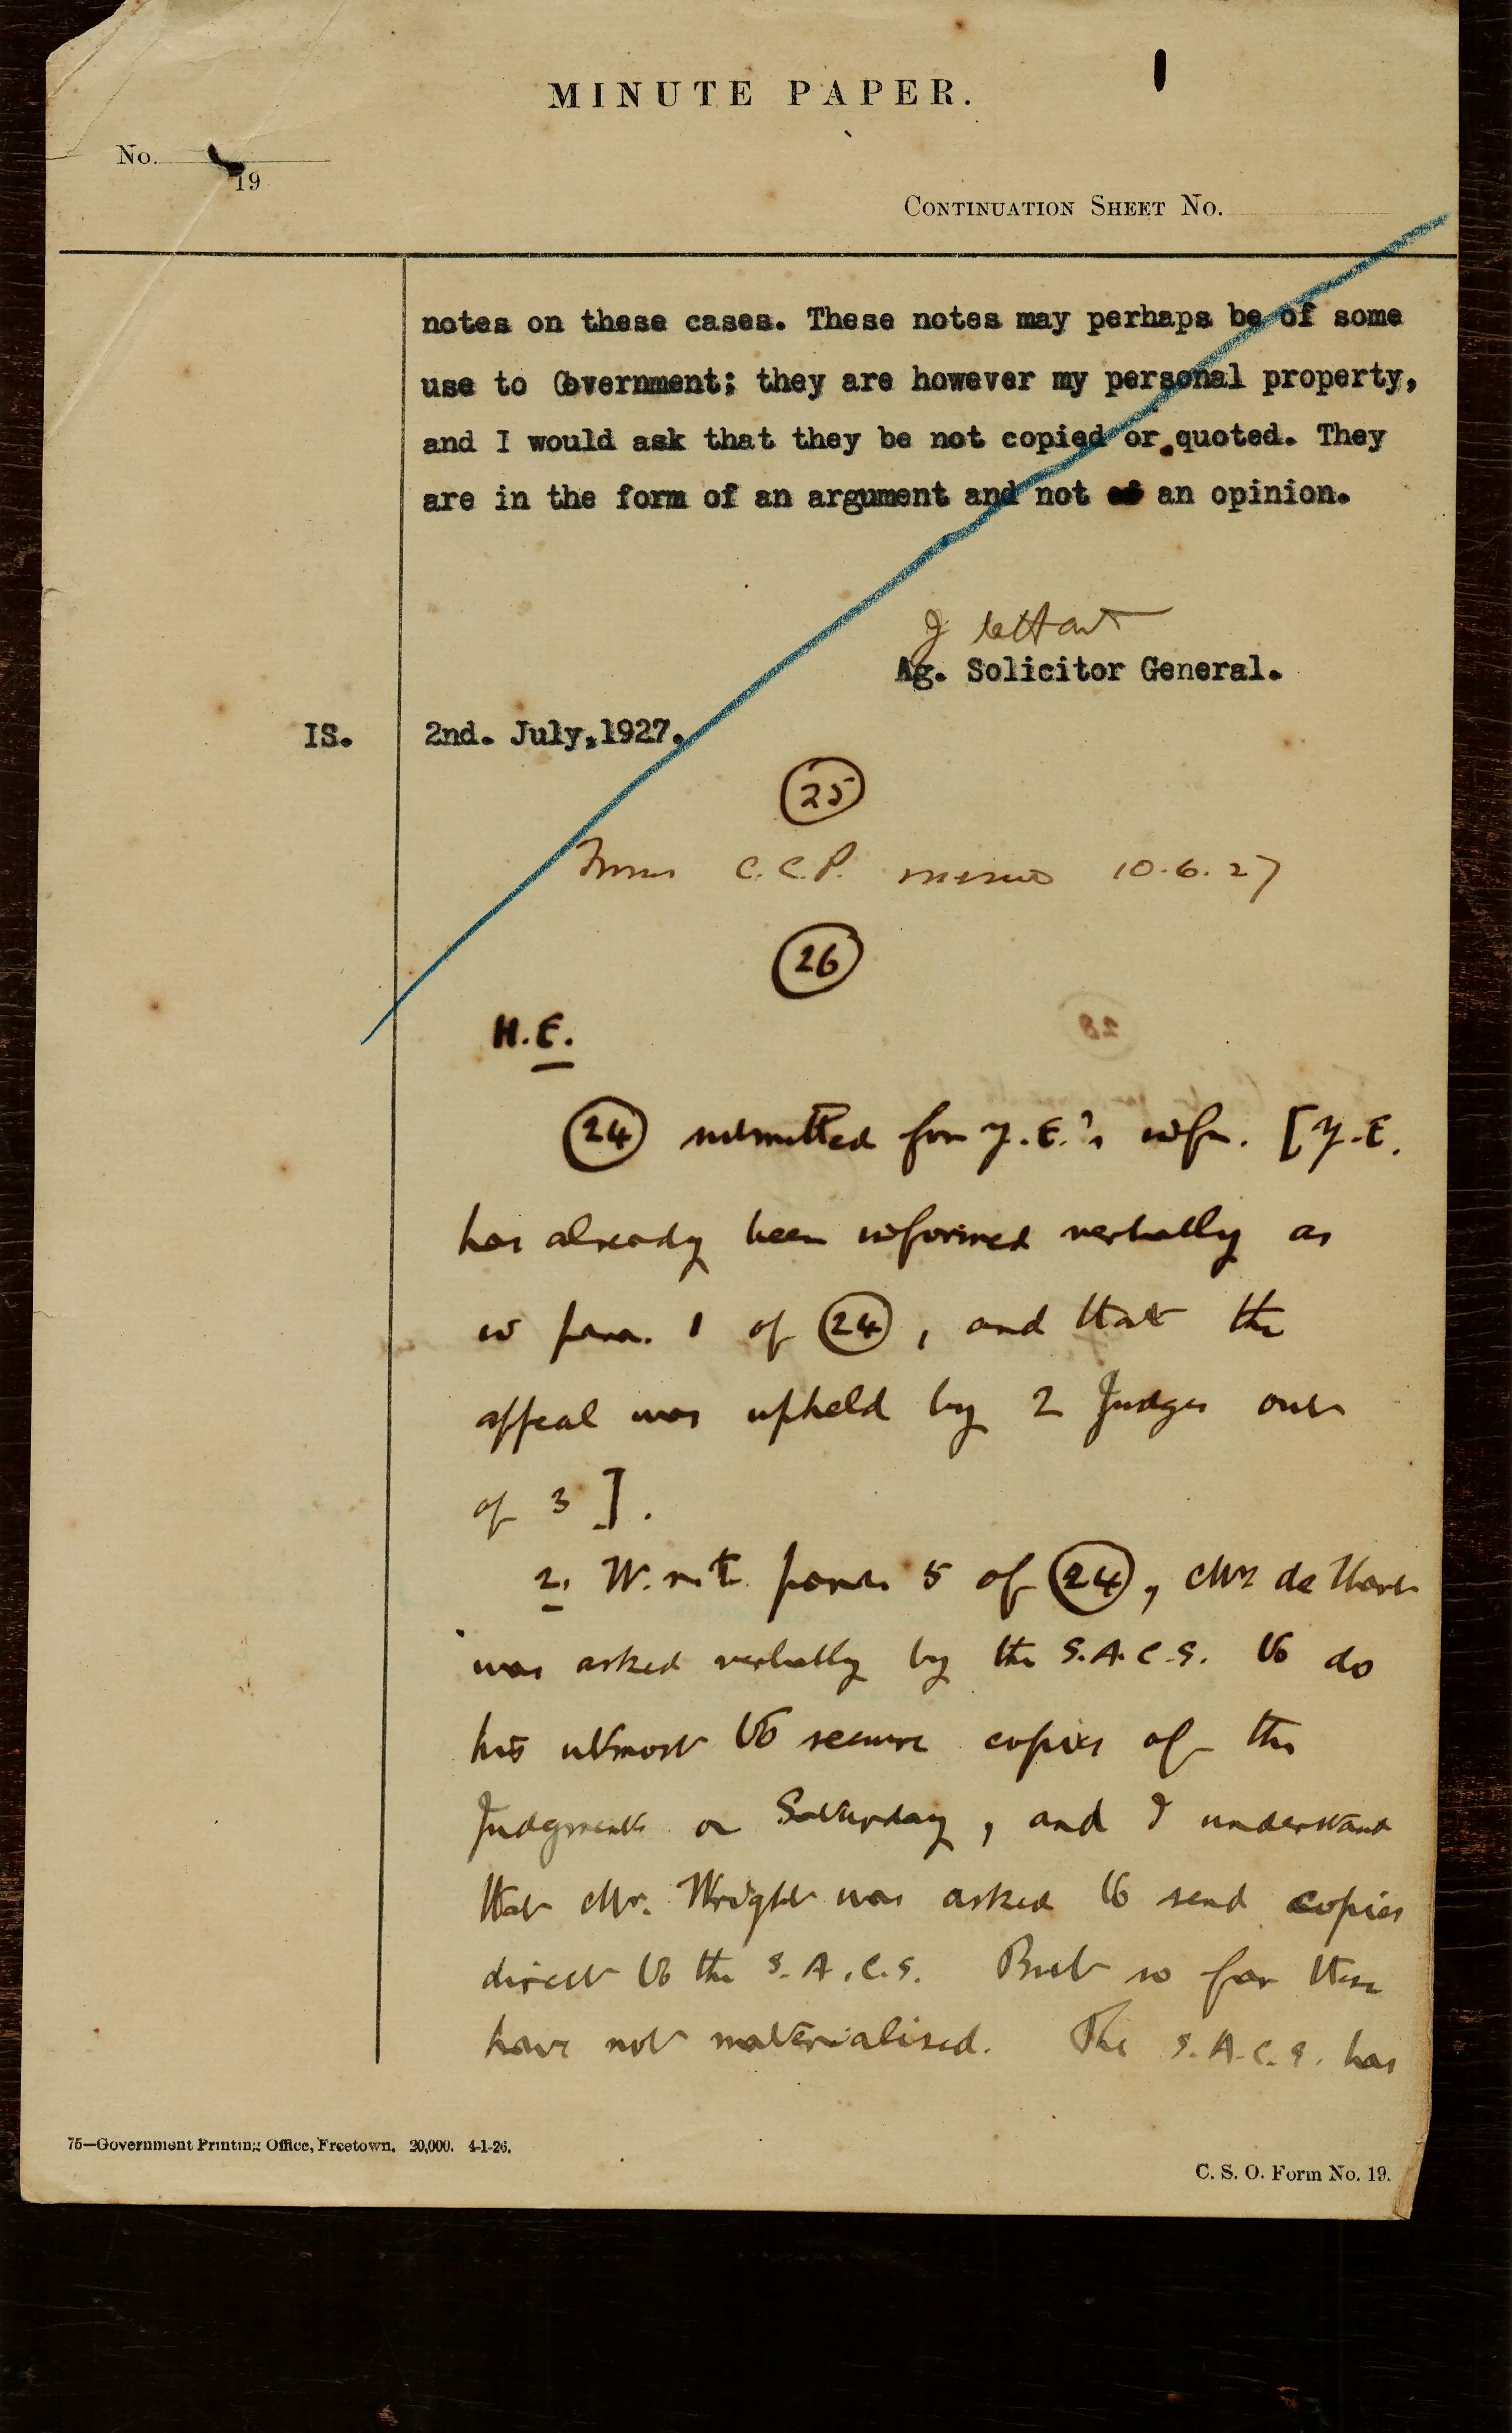 1
MINUTE PAPER.
No.
19
CONTINUATION SHEET No.
notes on these cases. These notes may perhaps be of some
use to Government; they are however my personal property,
and I would ask that they be not copied or quoted. They
are in the form of an argument and not an opinion.
J de Hart
Ag. Solicitor General.
IS.
2nd. July,1927.
25
C.C.P. 10.6.27
26
H.E.
24 submitted for Y.E.'s infn. [Y.E.
has already been informed verbally as
in para. 1 of 24, and that the
appeal was upheld by 2 Judges out
of 3].
2. W.r.t. para 5 of 24, Mr de Hart
was asked verbally by the S.A.C.S. to do
his utmost to secure copies of the
Judgments on Saturday, and I understand
that Mr. Wright was asked to send copies
direct to the S.A.C.S. But so far these
have not materialised. The S.A.C.S. has
75—Government Printing Office, Freetown. 20,000. 4-1-26.
C. S. O. Form No. 19.